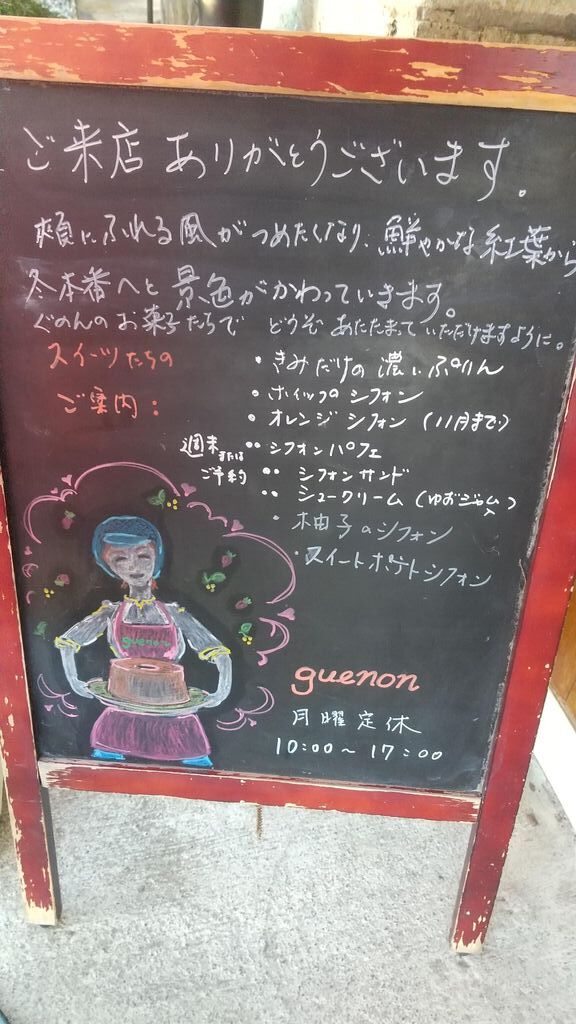 ご来店 ありがとうございます。
頬にふれる風がつめたくなり、鮮やかな紅葉から
冬本番へと景色がかわっていきます。
ぐのんのお菓子たちで どうぞ あたたまっていただけますように。
スイーツたちの
ご案内：
・きみだけの濃いぷりん
・ホイップシフォン
・オレンジシフォン（11月まで）
週末またはご予約
・・シフォンパフェ
・・シフォンサンド
・・シュークリーム（ゆずジャム入）
・柚子のシフォン
・スイートポテトシフォン
guenon
guenon
月曜定休
10:00～17:00